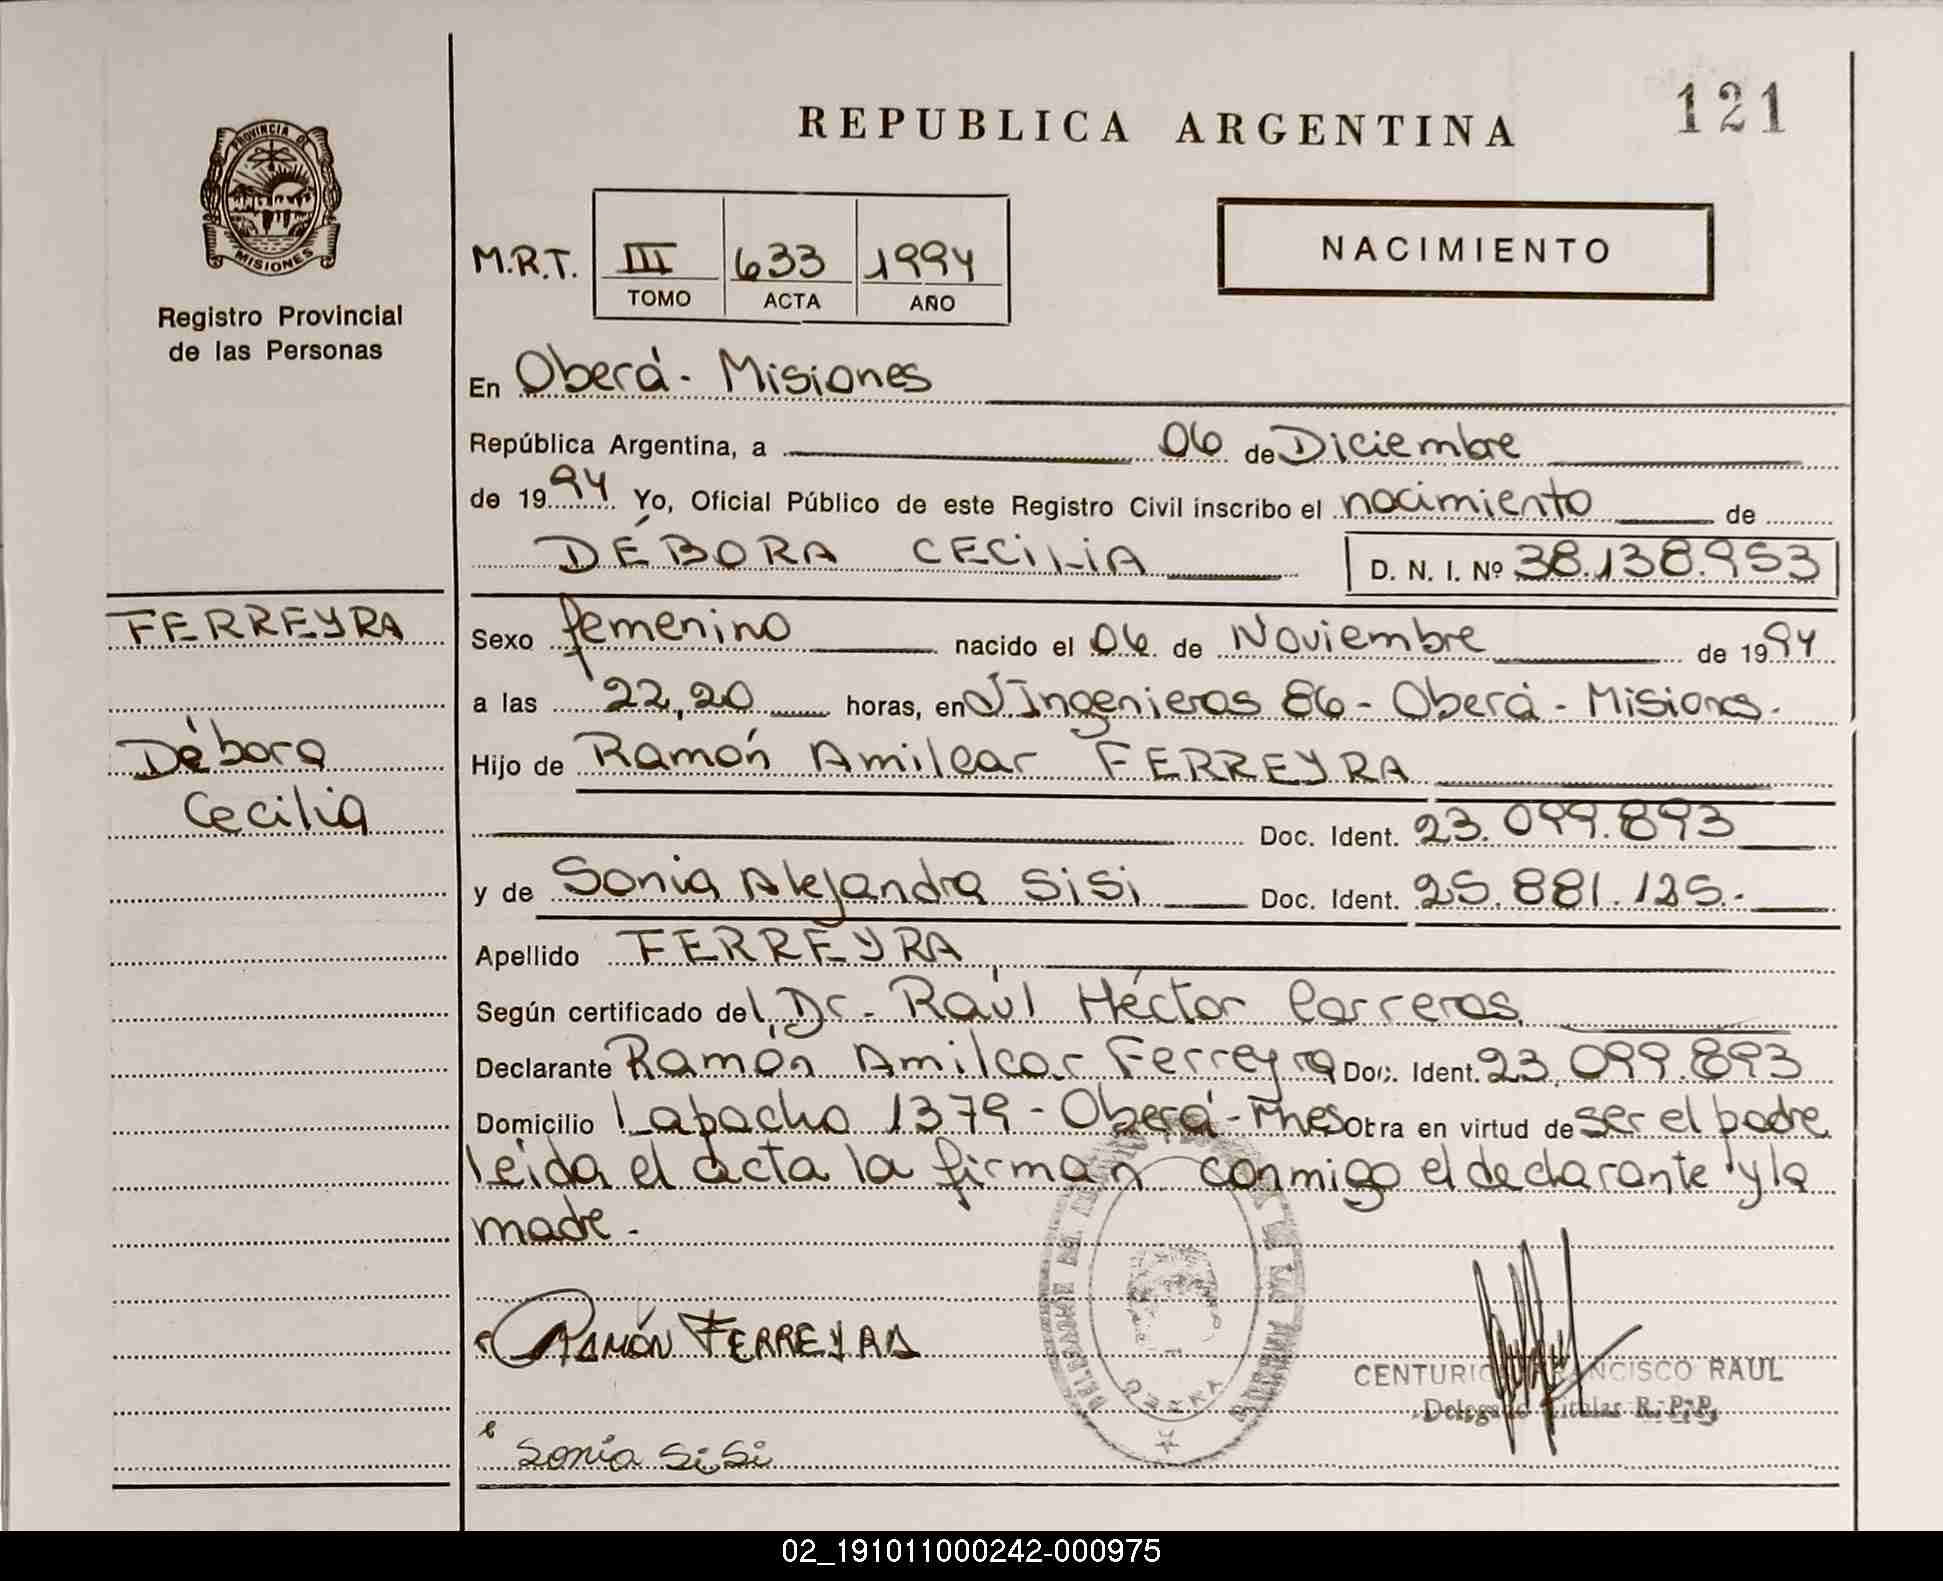 REPUBLICA ARGENTINA
121
PROVINCIA DE
MISIONES
Registro Provincial
de las Personas
M.R.T.
III
TOMO
633
ACTA
1994
AÑO
NACIMIENTO
En Oberá - Misiones
República Argentina, a 06 de Diciembre
de 1994 Yo, Oficial Público de este Registro Civil inscribo el nacimiento de
DÉBORA CECILIA D. N. I. Nº 38.138.953
FERREYRA
Débora
Cecilia
Sexo femenino nacido el 06 de Noviembre de 1994
a las 22,20 horas, en J Ingenieros 86 - Oberá - Misiones.
Hijo de Ramón Amilcar FERREYRA
Doc. Ident. 23.099.893
y de Sonia Alejandra SiSi Doc. Ident. 25.881.125.-
Apellido FERREYRA
Según certificado del, Dr. Raúl Héctor Carreras
Declarante Ramón Amilcar Ferreyra Doc. Ident. 23.099.893
Domicilio Lapacho 1379 - Oberá - Mnes Obra en virtud de ser el padre
leida el acta la firman conmigo el declarante y la
madre.
RAMÓN FERREYRA
Sonia SiSi
CENTURIO FRANCISCO RAUL
Delegado Titular R.P.P.
02_191011000242-000975